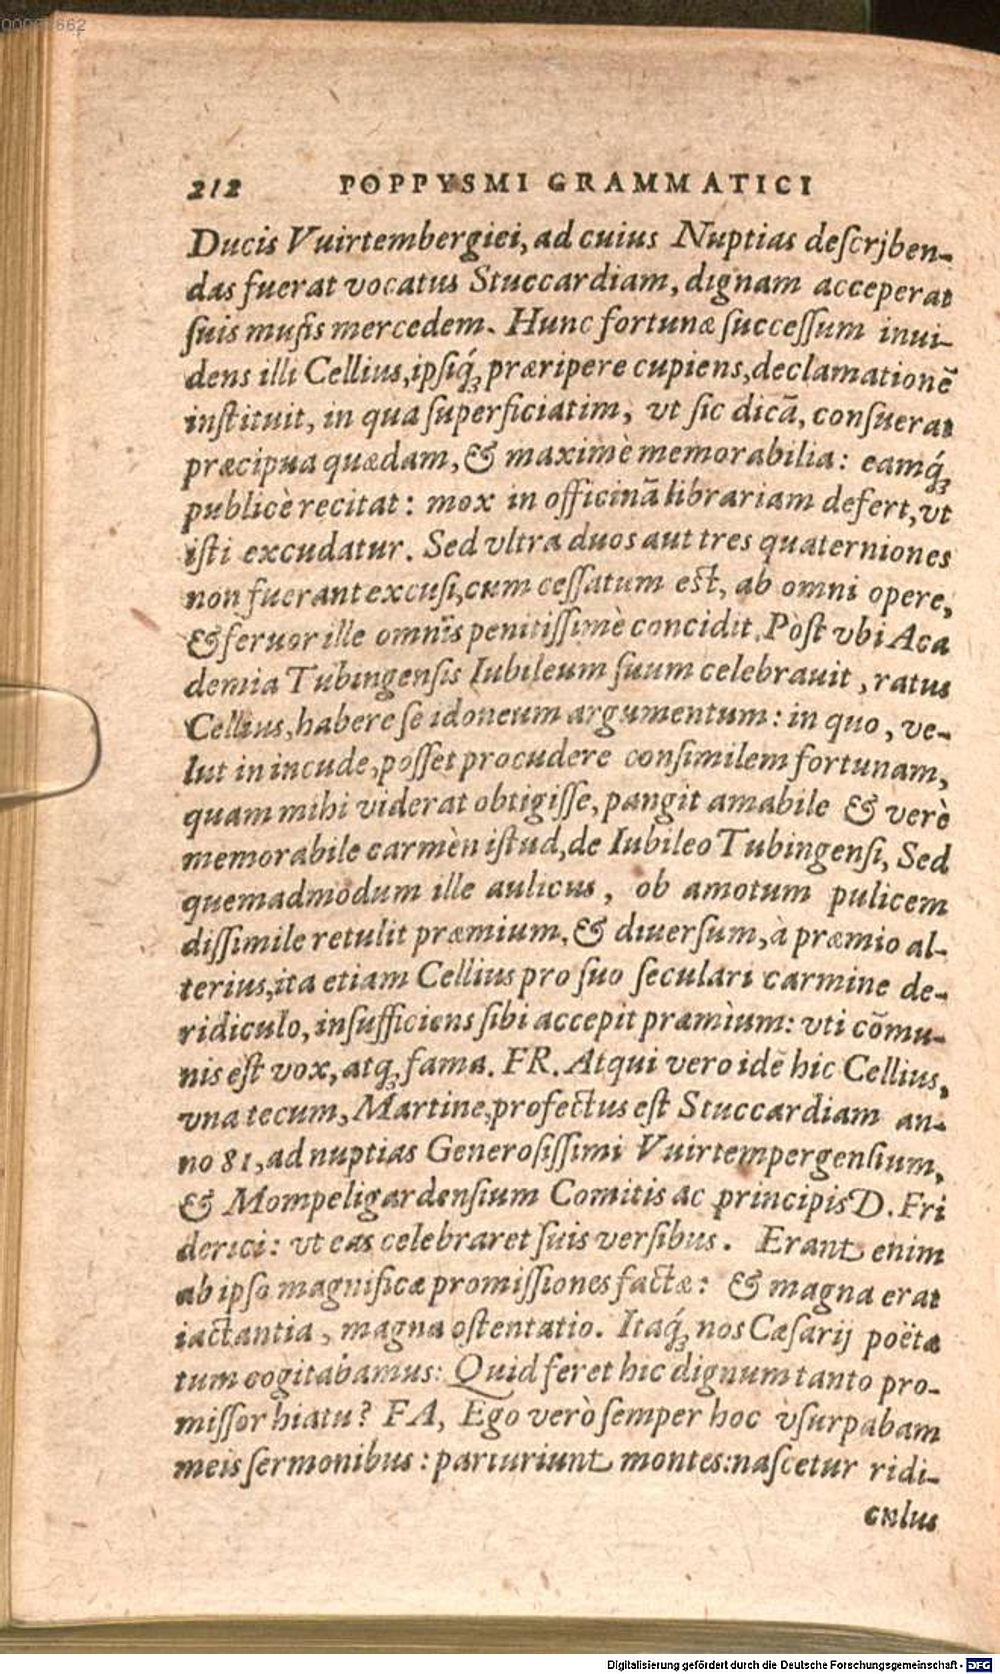 00001662
212 POPPYSMI GRAMMATICI
Ducis Vuirtembergiei, ad cuius Nuptias deſcrjben-
das fuerat vocatus Stuccardiam, dignam acceperat
ſuis muſis mercedem. Hunc fortunæ ſucceſſum inui-
dens illi Cellius, ipſiq́ꝫ præripere cupiens, declamationẽ
inſtituit, in qua ſuperficiatim, vt ſic dicã, conſuerat
præcipua quædam, & maximè memorabilia: eamq́ꝫ
publicè recitat: mox in officinã librariam defert, vt
iſti excudatur. Sed vltra duos aut tres quaterniones
non fuerant excuſi, cum ceſſatum eſt, ab omni opere,
& feruor ille omnis penitiſſimè concidit. Pòſt vbi Aca
demia Tubingenſis Iubileum ſuum celebrauit, ratus
Cellius, habere ſe idoneum argumentum: in quo, ve-
lut in incude, poſſet procudere conſimilem fortunam,
quam mihi viderat obtigiſſe, pangit amabile & verè
memorabile carmèn iſtud, de Iubileo Tubingenſi, Sed
quemadmodum ille aulicus, ob amotum pulicem
diſſimile retulit præmium, & diuerſum, à præmio al-
terius, ita etiam Cellius pro ſuo ſeculari carmine de-
ridiculo, inſufficiens ſibi accepit præmium: vti cõmu-
nis eſt vox, atqꝫ fama. FR. Atqui vero idẽ hic Cellius,
vna tecum, Martine, profectus eſt Stuccardiam an-
no 81, ad nuptias Generoſiſſimi Vuirtempergenſium,
& Mompeligardenſium Comitis ac principis D. Fri
derici: vt eas celebraret ſuis verſibus. Erant enim
ab ipſo magnificæ promiſſiones factæ: & magna erat
iactantia, magna oſtentatio. Itaq́ꝫ nos Cæſarij poëtæ
tum cogitabamus: Quid feret hic dignum tanto pro-
miſſor hiatu? FA, Ego verò ſemper hoc vſurpabam
meis ſermonibus: parturiunt montes: naſcetur ridi-
culus
Digitalisierung gefördert durch die Deutsche Forschungsgemeinschaft - DFG